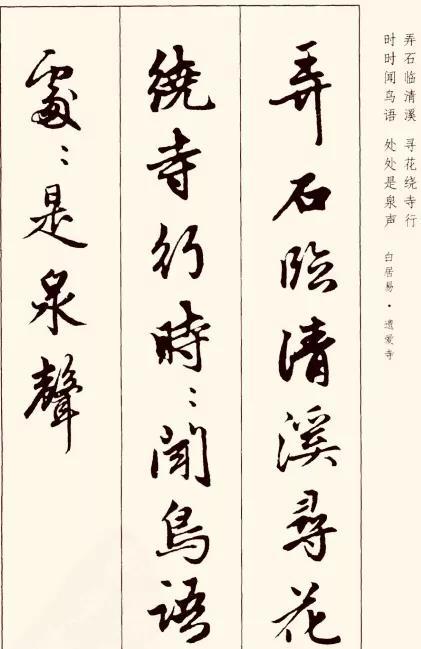 弄石临清溪 寻花绕寺行
时时闻鸟语 处处是泉声
白居易·遗爱寺
弄石臨清溪尋花
繞寺行時:聞鳥語
處:是泉聲